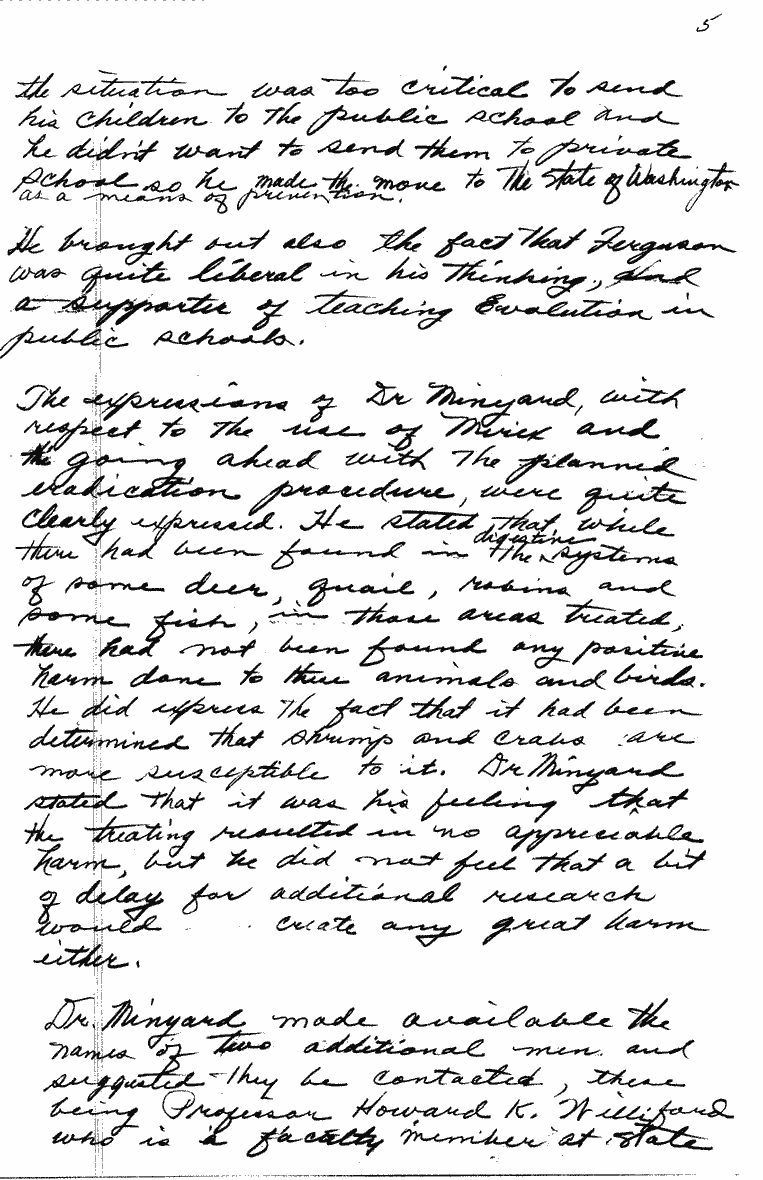 5
the situation was too critical to send
his children to the public school and
he didn't want to send them to private
school so he made the move to the State of Washington
as a means of prevention.
He brought out also the fact that Ferguson
was quite liberal in his thinking, and
a supporter of teaching Evolution in
public schools.
The expressions of Dr Minyard, with
respect to the use of Mirex and
the going ahead with the planned
eradication procedure, were quite
clearly expressed. He stated that, while
there had been found in the digestive systems
of some deer, quail, robins and
some fish, in those areas treated,
there had not been found any positive
harm done to these animals and birds.
He did express the fact that it had been
determined that shrimp and crabs are
more susceptible to it. Dr Minyard
stated that it was his feeling that
the treating resulted in no appreciable
harm, but he did not feel that a bit
of delay for additional research
would create any great harm
either.
Dr. Minyard made available the
names of two additional men and
suggested they be contacted, these
being Professor Howard K. Williford
who is a faculty member at State